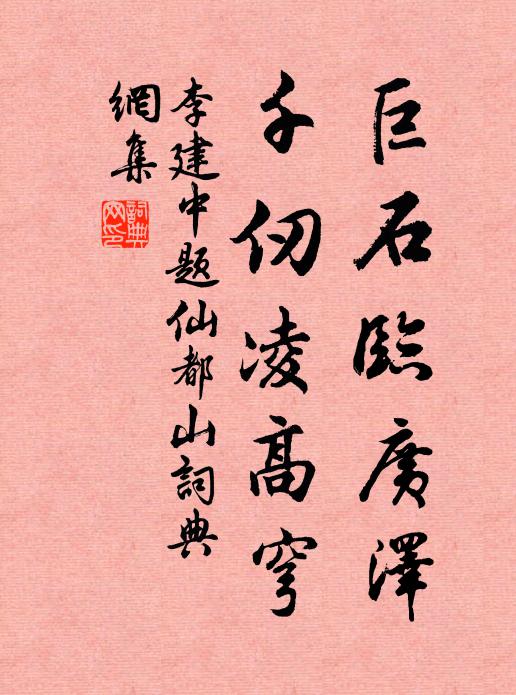 巨石臨廣澤
千仞凌高穹
李建中題仙都山詞典
網集
詞典網印